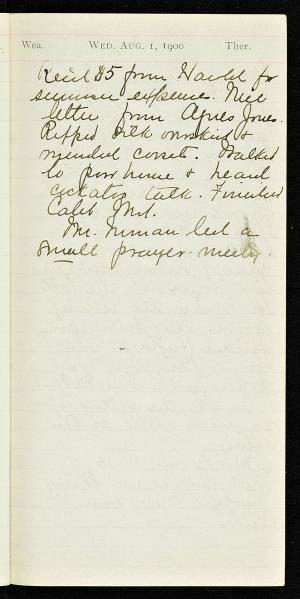 Wea. WED. AUG. 1, 1900 Ther.
Rec'd $5 from Harold for
summer expense. Nice
letter from Agnes Jones.
Ripped silk overskirt &
mended corsets. Walked
to poor house & heard
cockatoo talk. Finished
Caleb
Mr. Inman led a
small prayer-meeting.